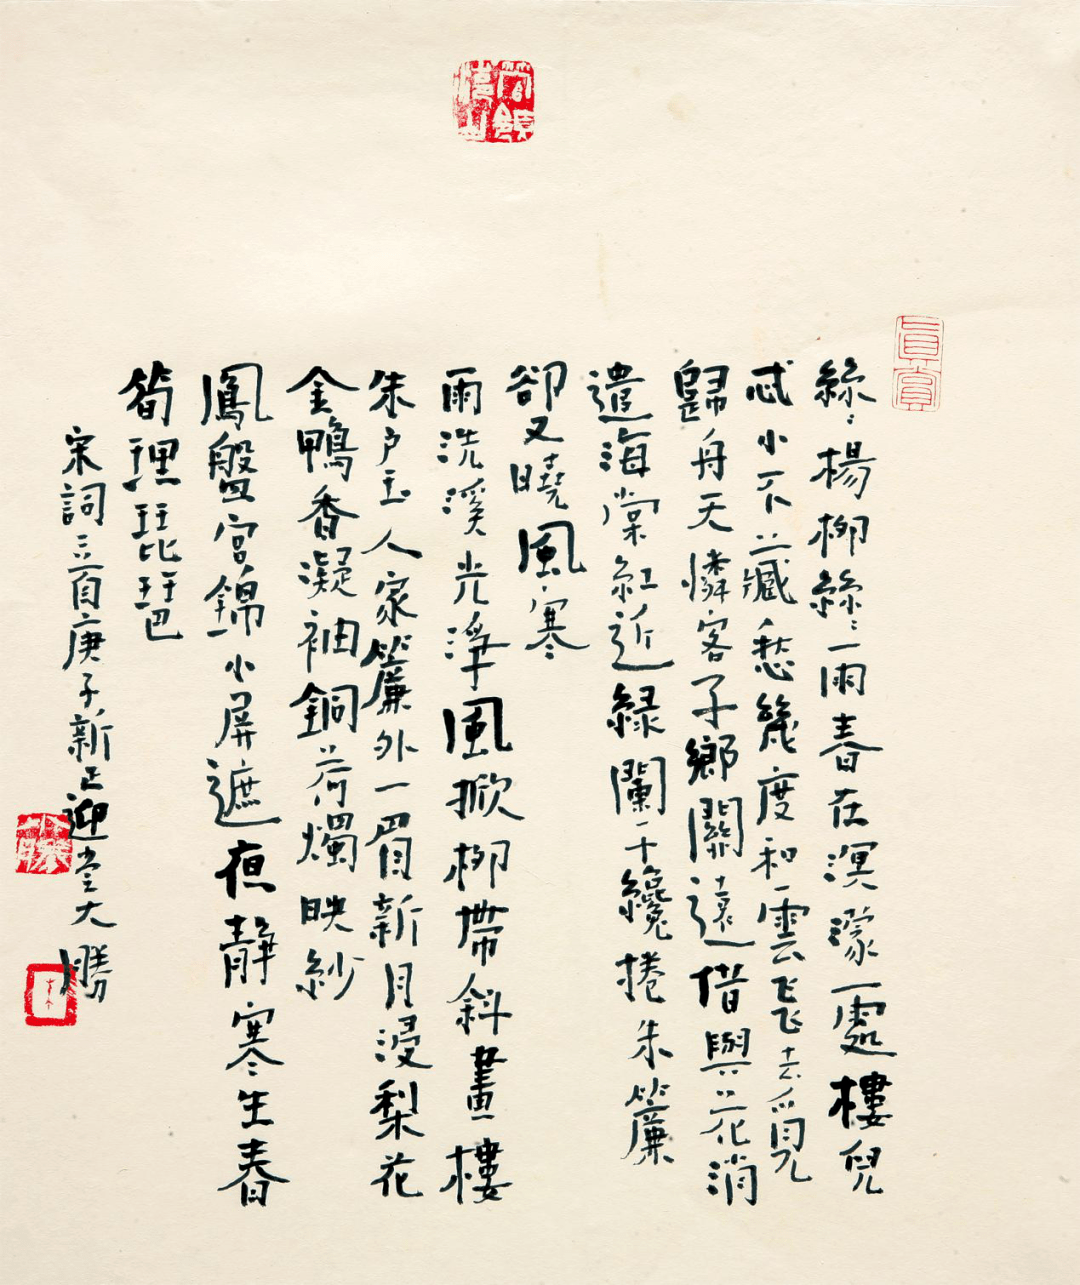 真賞
絲〻楊柳絲〻雨春在溟濛處樓兒
忒小不藏愁幾度和雲飛去覓
歸舟天憐客子鄉關遠借與花消
遣海棠紅近綠闌干纔捲朱簾
卻又曉風寒
雨洗溪光淨風掀柳帶斜畫樓
朱戶玉人家簾外一眉新月浸梨花
金鴨香凝袖銅荷燭映紗
鳳盤宮錦小屏遮夜靜寒生春
筍理琵琶
宋詞二首庚子新正迎堂大勝